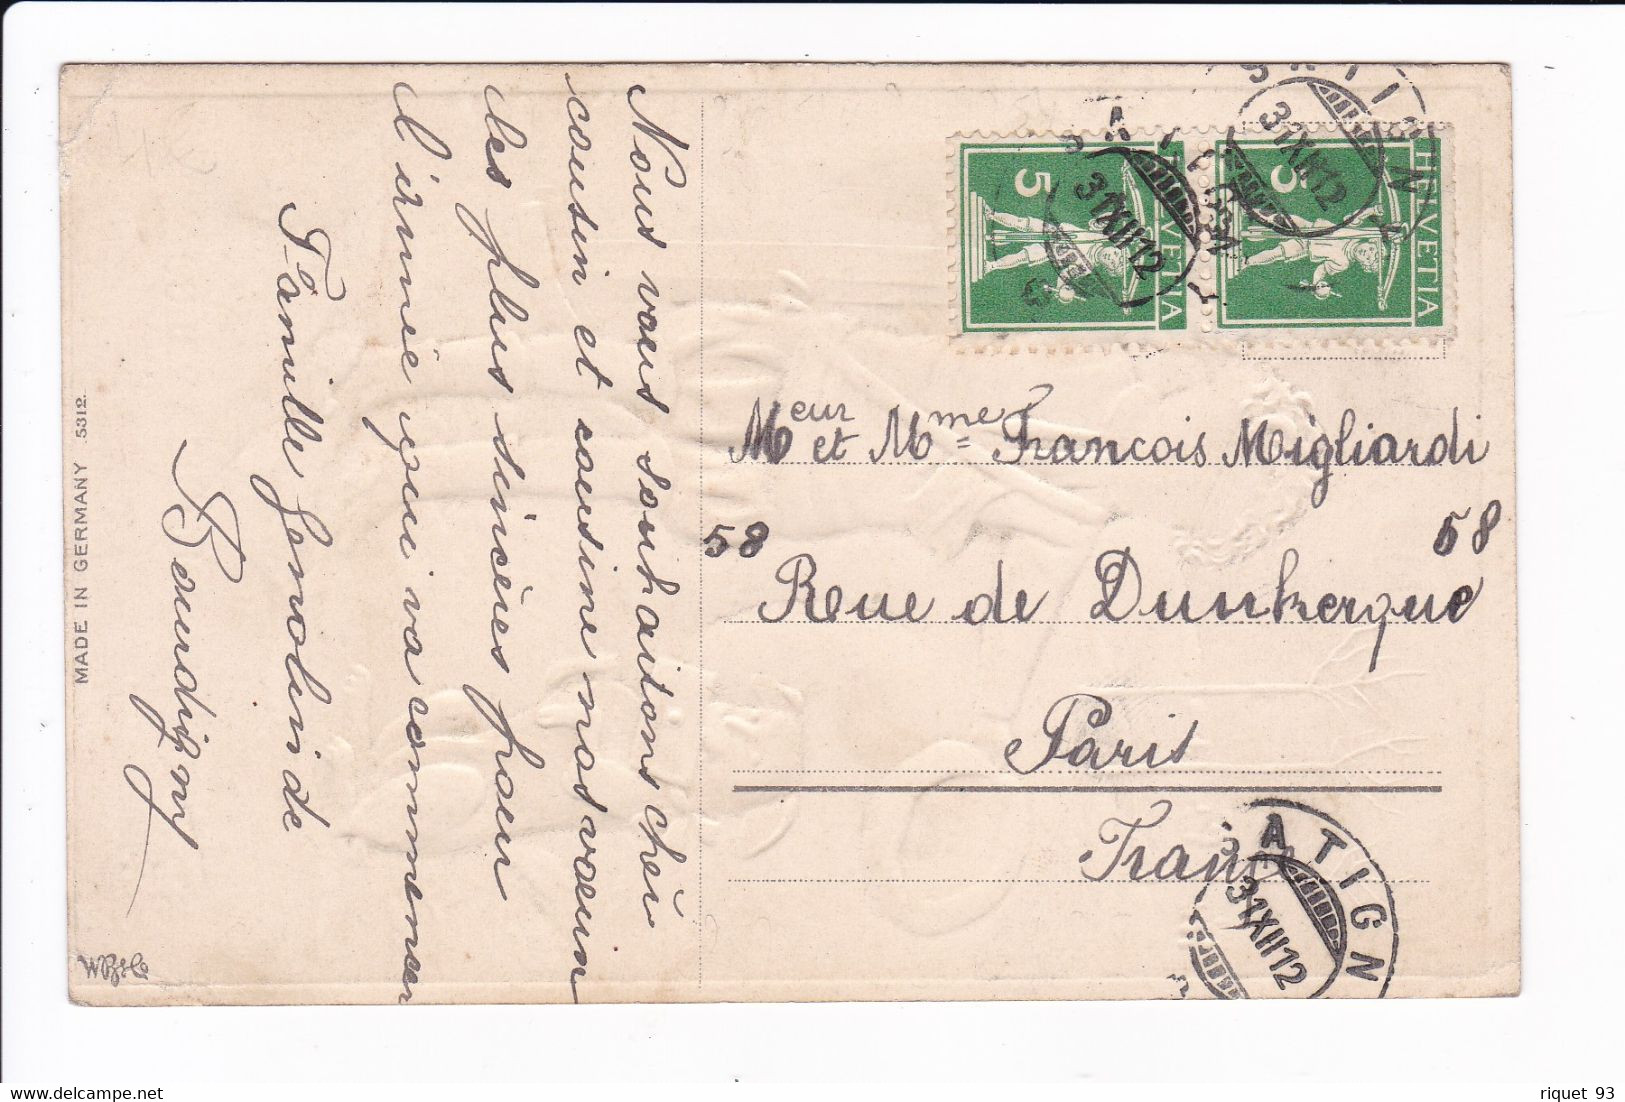 Nous vous souhaitons cher
cousin et cousine nos vœux
les plus sincères pour
l'année qui va commencer
Famille
de
Bourdigny
MADE IN GERMANY 5312.
HELVETIA
5
HELVETIA
5
SATIGNY
31 XII 12
SATIGNY
31 XII 12
Meur et Mme François Migliardi
58 58
Rue de Dunkerque
Paris
France
SATIGN
31 XII 12
delcampe.net
riquet 93